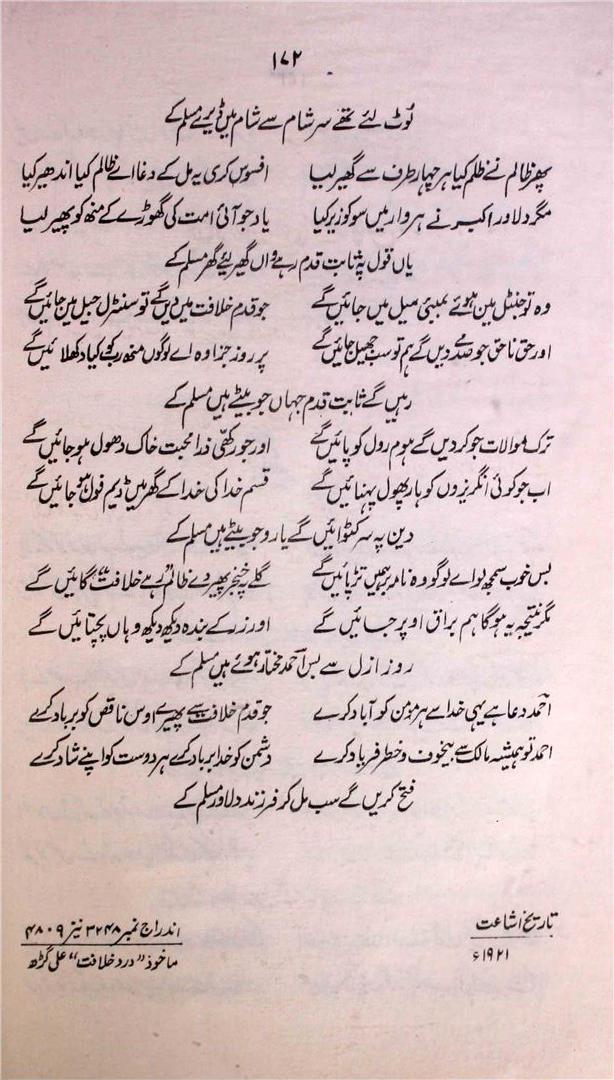 ۱۷۲
لُوٹ لئے تھے سر شام سے شام میں ڈیرے مسلم کے
پھر ظالم نے ظلم کیا ہر چہار طرف سے گھیر لیا افسوس کری یہ مل کے دغا اے ظالم کیا اندھیر کیا
مگر دلاور اکبر نے ہر وار میں سو کو زیر کیا یاد جو آئی امت کی گھوڑے کے منھ کو پھیر لیا
یاں قول پہ ثابت قدم رہے واں گھیر لئے گھر مسلم کے
وہ تو جنٹل مین ہوئے بمبئی میل میں جائیں گے جو قدم خلافت میں دیں گے تو سنٹرل جیل میں جائیں گے
اور حق ناحق جو صدمے دیں گے ہم تو سب جھیل جائیں گے پر روز جزا وہ اے لوگوں منھ رب کو کیا دکھلائیں گے
رہیں گے ثابت قدم جہاں جو بیٹے ہیں مسلم کے
ترک موالات جو کردیں گے ہوم رول کو پائیں گے اور جو رکھی ذرا محبت خاک دھول ہو جائیں گے
اب جو کوئی انگریزوں کو ہار پھول پہنائیں گے قسم خدا کی خدا کے گھر میں ڈیم فول ہو جائیں گے
دین پہ سر کٹوائیں گے یارو جو بیٹے ہیں مسلم کے
بس خوب سمجھ لو اے لوگو وہ نامرد ہمیں تڑپائیں گے گلے پہ خنجر پھیر دے ظالم رہے خلافت گائیں گے
مگر نتیجہ یہ ہوگا ہم براق اوپر جائیں گے اور زر کے بندہ دیکھ دیکھ وہاں پچتائیں گے
روز ازل سے بس احمد مختار ہوئے ہیں مسلم کے
احمد دعا ہے یہی خدا سے ہر مومن کو آباد کرے جو قدم خلافت سے پھیرے اوس ناقص کو برباد کرے
احمد تو ہمیشہ مالک سے بیخوف و خطر فریاد کرے دشمن کو خدا برباد کرے ہر دوست کو اپنے شاد کرے
فتح کریں گے سب مل کر فرزند دلاور مسلم کے
تاریخ اشاعت اندراج نمبر ۳۲۴۸ نیز ۴۸۰۹
۱۹۲۱ء ماخوذ "درد خلافت" علی گڑھ